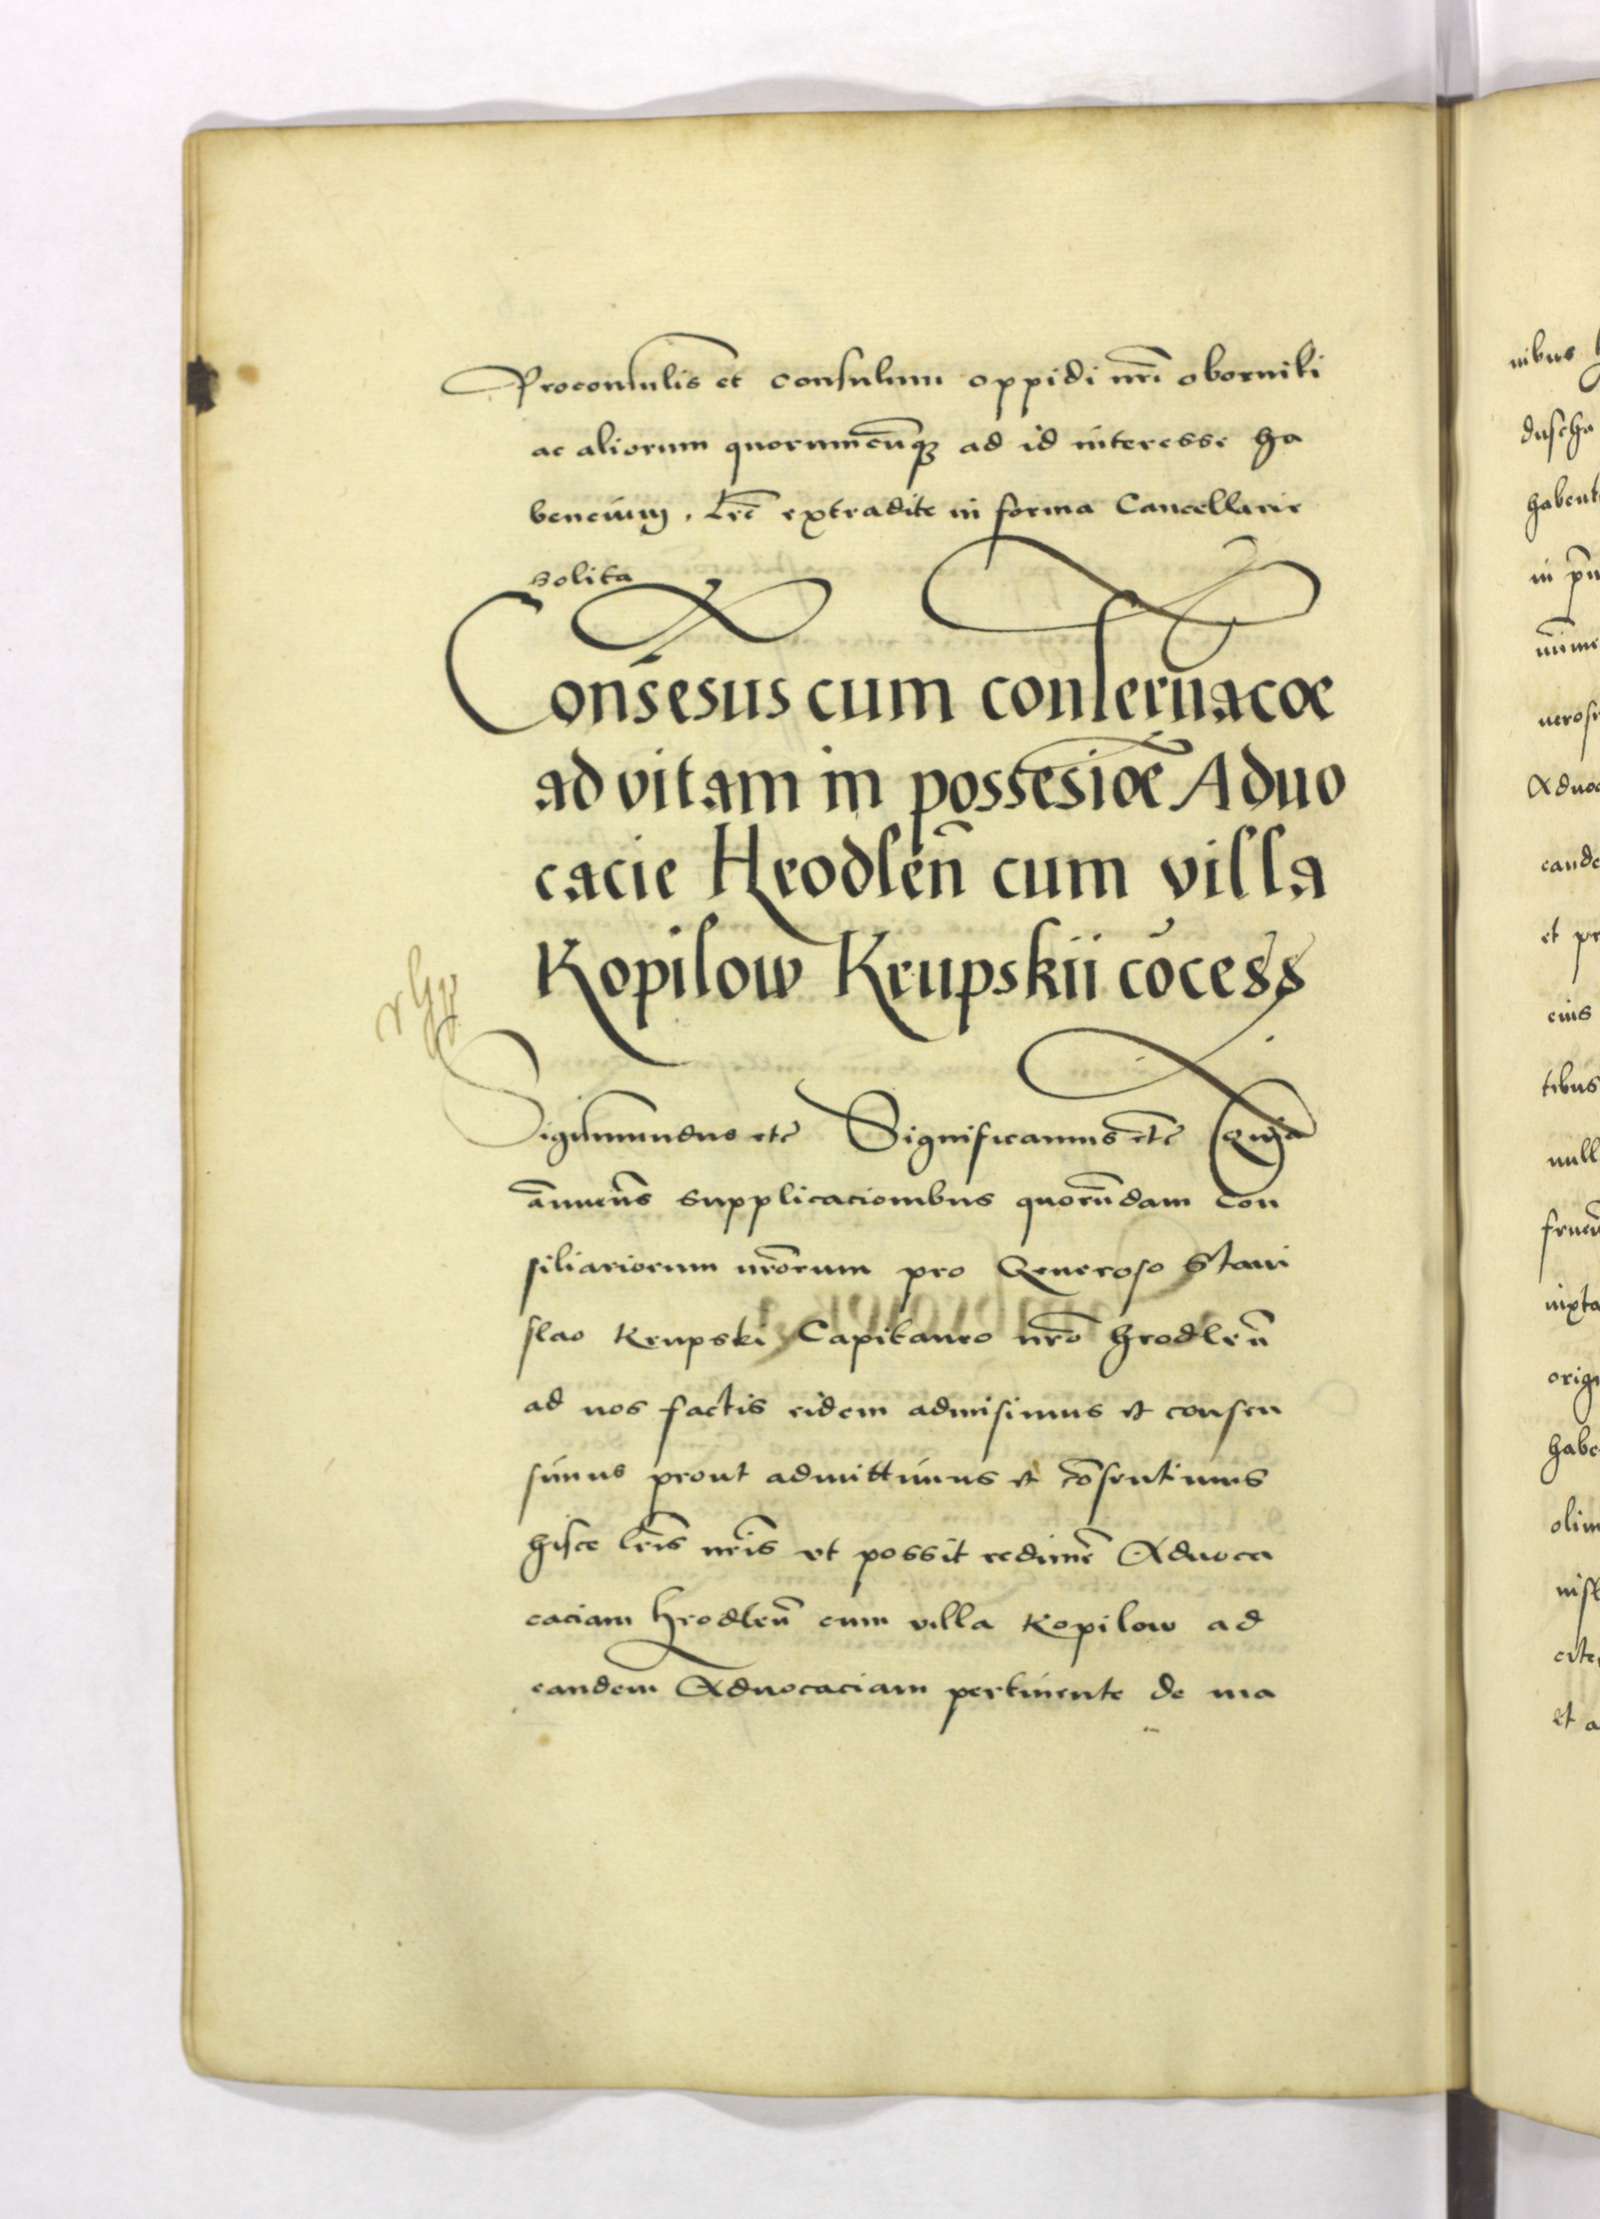 Proconsulis et consulum oppidi nr̃i oborniki
ac aliorum quorumcũqȝ ad id interesse ha
bencium. Lr̃e extradite in forma Cancellarie
solita
Consẽsus cum conseruacõe
ad vitam in possesiõe Aduo
cacie Hrodlen̄ cum villa
Kopilow Krupskii cõcess
Sigismundus etc̃ Significamus etc̃ Quia
ãnuen̄s supplicacionibus quorũdam Con
siliariorum nr̃orum pro Generoso Stani
slao Krupski Capitaneo nr̃o hrodlen̄
ad nos factis eidem admisimus et consen
simus prout admittimus et cõsentimus
hisce lr̃is nr̃is vt possit redimer̃ Aduoca
caciam hrodlen̄ cum villa Kopilow ad
eandem Aduocaciam pertinente de ma
nibus
duscha
habent
in
Aduoc
eande
et pr
eius
tibus
null
iuxta
origi
habe
olim
et a